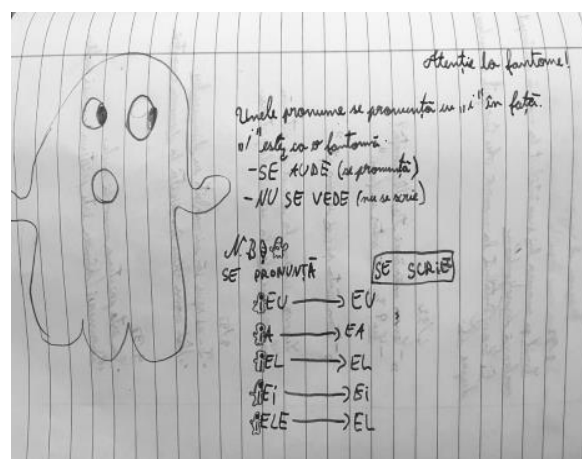 Atenție la fantome!
Unele pronume se pronunță cu „i" în față.
„i" este ca o fantomă
-SE AUDE (se pronunță)
-NU SE VEDE (nu se scrie)
N.B
SE PRONUNȚĂ SE SCRIE
EU → EU
A → EA
EL → EL
Ei → Ei
ELE → EL